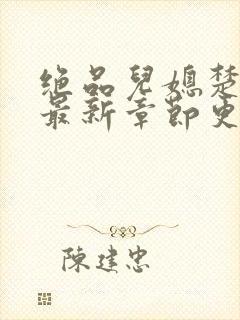 絕品兒媳楚
最新章節更
陳建忠